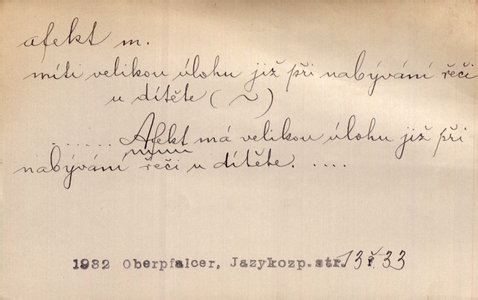 afekt m.
míti velikou úlohu již při nabývání řeči
u dítěte (~)
...... Afekt má velikou úlohu již při
nabývání řeči u dítěte. ....
1932 Oberpfalcer, Jazykozp. str. 33